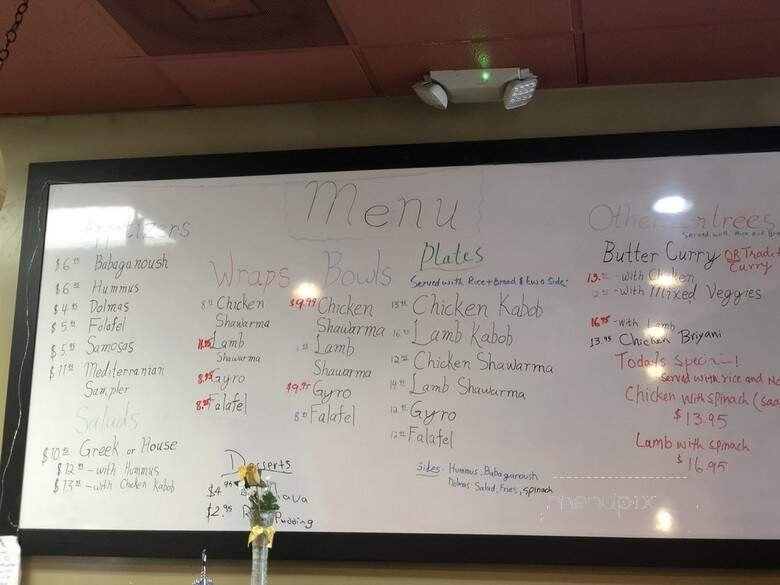 Menu
Appetizers
$6.95 Babaganoush
$6.95 Hummus
$4.95 Dolmas
$5.95 Falafel
$5.95 Samosas
$11.95 Mediterranian
Sampler
Salads
$10.95 Greek or House
$12.95 - with Hummus
$13.95 - with Chicken Kabob
Wraps
Chicken
Shawarma
Lamb
Shawarma
Gyro
Falafel
Desserts
$4.95
$2.95 Pudding
Bowls
$9.99 Chicken
Shawarma
Lamb
Shawarma
$9.95 Gyro
Falafel
Plates
Served with Rice + Bread & two side
Chicken Kabob
Lamb Kabob
Chicken Shawarma
Lamb Shawarma
Gyro
Falafel
Sides- Hummus, Babaganoush
Dolmas Salad, Fries, spinach
Other Entrees
Served with Rice and
Butter Curry OR
Curry
- with Chicken
- with Mixed Veggies
16.95 - with Lamb
13.95 Chicken Briyani
Today's Special!
Served with rice and
Chicken with spinach
$13.95
Lamb with spinach
$16.95
menupix